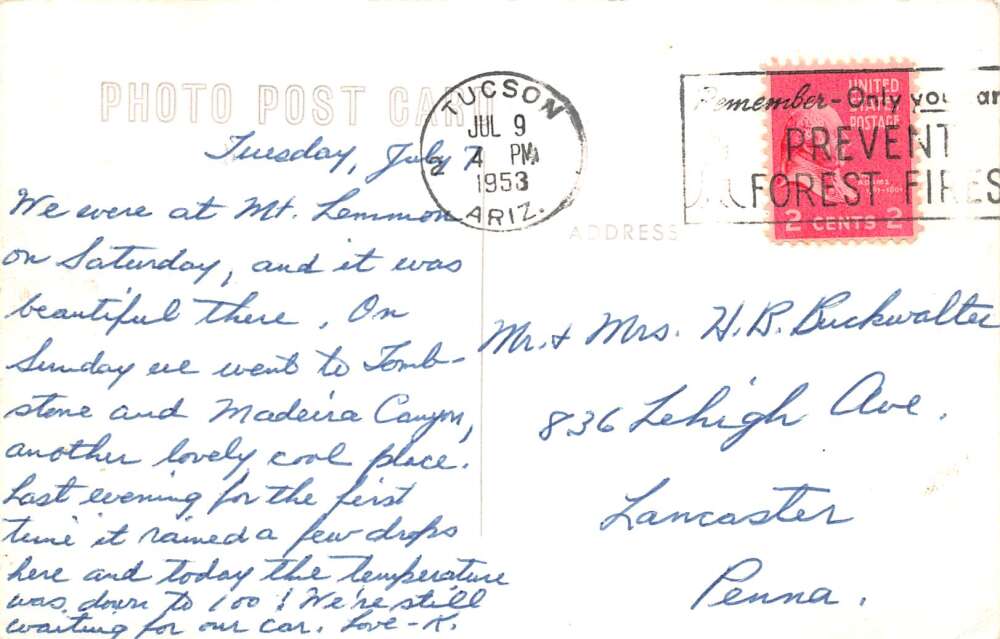 PHOTO POST CARD
TUCSON
JUL 9
4 PM
1953
ARIZ.
Remember - Only you
PREVENT
FOREST FIRES
UNITED
STATES
POSTAGE
ADAMS
2 CENTS 2
ADDRESS
Tuesday, July 7
We were at Mt. Lemmon
on Saturday, and it was
beautiful there. On
Sunday we went to Tomb-
stone and Madeira Canyon,
another lovely cool place.
Last evening for the first
time it rained a few drops
here and today the temperature
was down to 100! We're still
waiting for our car. Love - K.
Mr. & Mrs. H. B. Buckwalter
836 Lehigh Ave.
Lancaster
Penna.